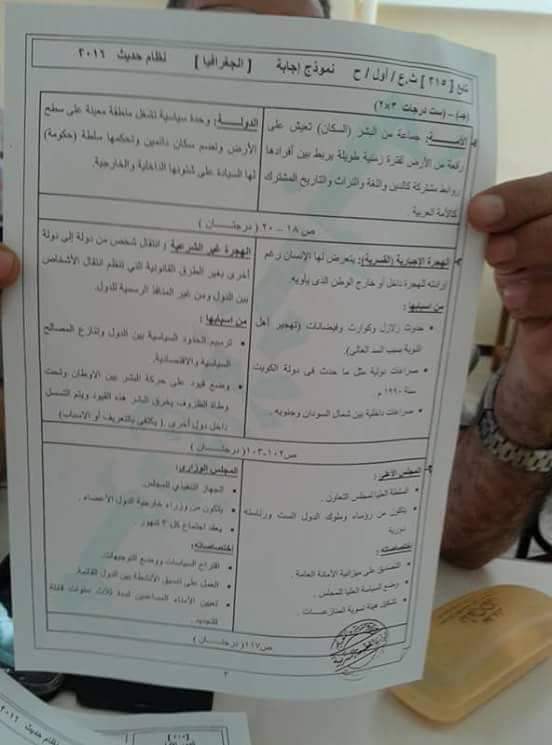 تابع [ ٢١٥ ] ث.ع / أول / ح نموذج إجابة [ الجغرافيا ] نظام حديث ٢٠١٦
(جـ) – (ست درجات ٣×٢)
١- الأمـــة: جماعة من البشر (السكان) تعيش على
رقعة من الأرض لفترة زمنية طويلة يربط بين أفرادها
روابط مشتركة كالدين واللغة والتراث والتاريخ المشترك
كالأمة العربية
الدولــة: وحدة سياسية تشغل منطقة معينة على سطح
الأرض وتضم سكان دائمين وتحكمها سلطة (حكومة)
لها السيادة على شئونها الداخلية والخارجية.
ص ١٨ – ٢٠ ( درجتـــان )
٢- الهجرة الإجبارية (القسرية): يتعرض لها الإنسان رغم
إرادته للهجرة داخل أو خارج الوطن الذى يأويه.
من أسبابها :
• حدوث زلازل وكوارث وفيضانات (تهجير أهل
النوبة بسبب السد العالى).
• صراعات دولية مثل ما حدث فى دولة الكويت
سنة ١٩٩٠ م.
• صراعات داخلية بين شمال السودان وجنوبه.
الهجرة غير الشرعية : انتقال شخص من دولة إلى دولة
أخرى بغير الطرق القانونية التي تنظم انتقال الأشخاص
بين الدول ومن غير المنافذ الرسمية للدول.
من أسبابها :
• ترسيم الحدود السياسية بين الدول وتنازع المصالح
السياسية والاقتصادية.
• وضع قيود على حركة البشر بين الأوطان وتحت
وطأة الظروف يخرق البشر هذه القيود ويتم التسلل
داخل دول أخرى . ( يكتفى بالتعريف أو الأسباب)
ص١٠٢-١٠٣ ( درجتـــان )
٣- المجلس الأعلى :
• السلطة العليا لمجلس التعاون .
• يتكون من رؤساء وملوك الدول الست ورئاسته
دورية
اختصاصاته :
• التصديق على ميزانية الأمانة العامة .
• وضع السياسة العليا للمجلس .
• تشكيل هيئة تسوية المنازعـــات .
المجلس الوزارى:
• الجهاز التنفيذي للمجلس.
• يتكون من وزراء خارجية الدول الأعضاء .
• يعقد اجتماع كل ٣ شهور
اختصاصاته:
• اقتراح السياسات ووضع التوصيات.
• العمل على تنسيق الأنشطة بين الدول القائمة.
• تعيين الأمناء المساعدين لمدة ثلاث سنوات قابلة
للتجديد.
ص١١٧ ( درجتـــان )
٢
[٢١٥]
نظام حديث ٢٠١٦